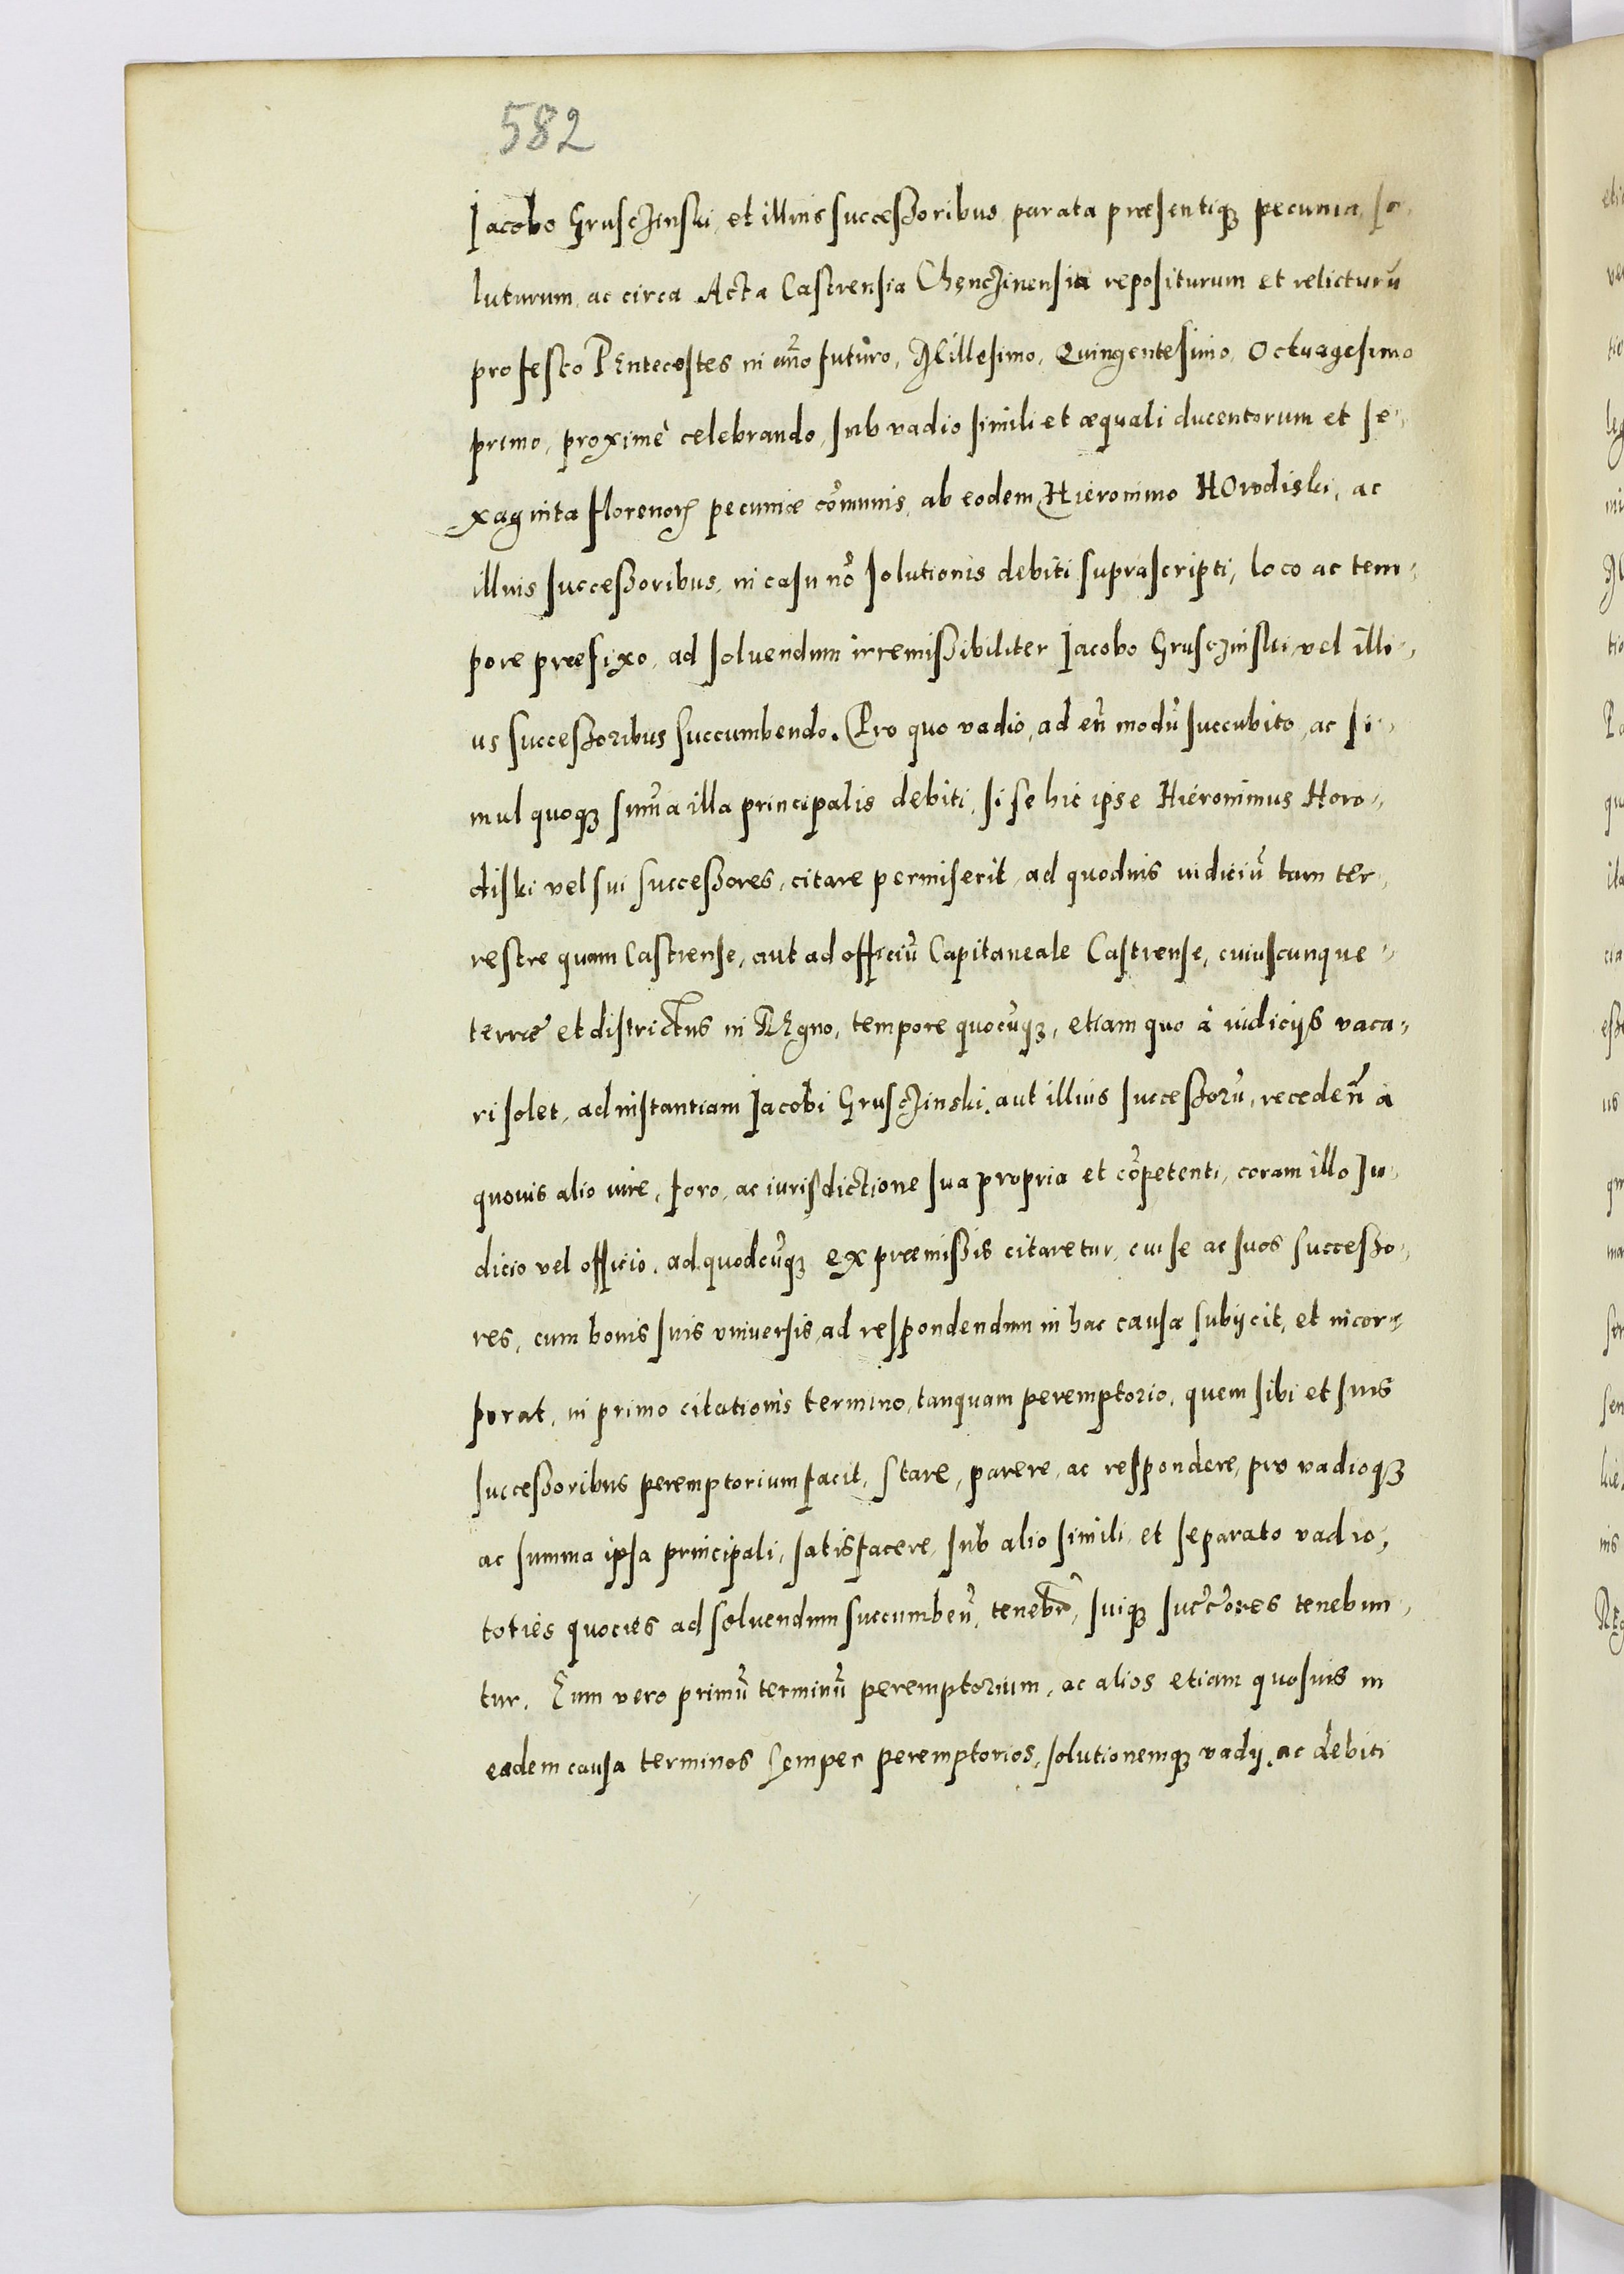 582
Jacobo Grusczinski, et illius successoribus parata præsentiq3 pecunia, so-
luturum, ac circa Acta Castrensia Chęnczinensia repositurum et relicturũ
pro festo PEntecostes in ãno futuro, Millesimo, Quingentesimo, Octuagesimo
primo, proximè celebrando, sub vadio simili et æquali ducentorum et se-
xaginta florenorꝝ pecuniæ cõmunis, ab eodem Hieronimo HOrodiski, ac
illius successoribus, in casu nõ solutionis debiti suprascripti, loco ac tem-
pore præfixo, ad soluendum irremissibiliter Jacobo Grusczinski, vel illi-
us successoribus succumbendo. Pro quo vadio, ad eũ modũ succubito, ac si-
mul quoq3 sum̃a illa principalis debiti, si se hic ipse Hieronimus Horo-
diski vel sui successores, citare permiserit, ad quoduis iudiciũ tam ter-
restre quam Castrense, aut ad officiũ Capitaneale Castrense, cuiuscunque
terræ et districtus in REgno, tempore quocũq3, etiam quo à iudicijs vaca-
ri solet, ad instantiam Jacobi Grusczinski, aut illius successorũ, recedeñ à
quouis alio iure, foro, ac iurisdictione sua propria et cõpetenti, coram illo Ju-
dicio vel officio, ad quodcũq3 ex præmissis citaretur, cui se ac suos successo-
res, cum bonis suis vniuersis, ad respondendum in hac causa subijcit, et incor-
porat, in primo citationis termino, tanquam peremptorio, quem sibi et suis
successoribus peremptorium facit, stare, parere, ac respondere, pro vadioq3
ac summa ipsa principali, satisfacere, sub alio simili et separato vadio,
toties quocies ad soluendum succumbeñ, tenebr̃, suiq3 succ̃ores tenebun-
tur. Eum vero primũ terminũ peremptorium, ac alios etiam quosuis in
eadem causa terminos semper peremptorios, solutionemq3 vadij, ac debiti